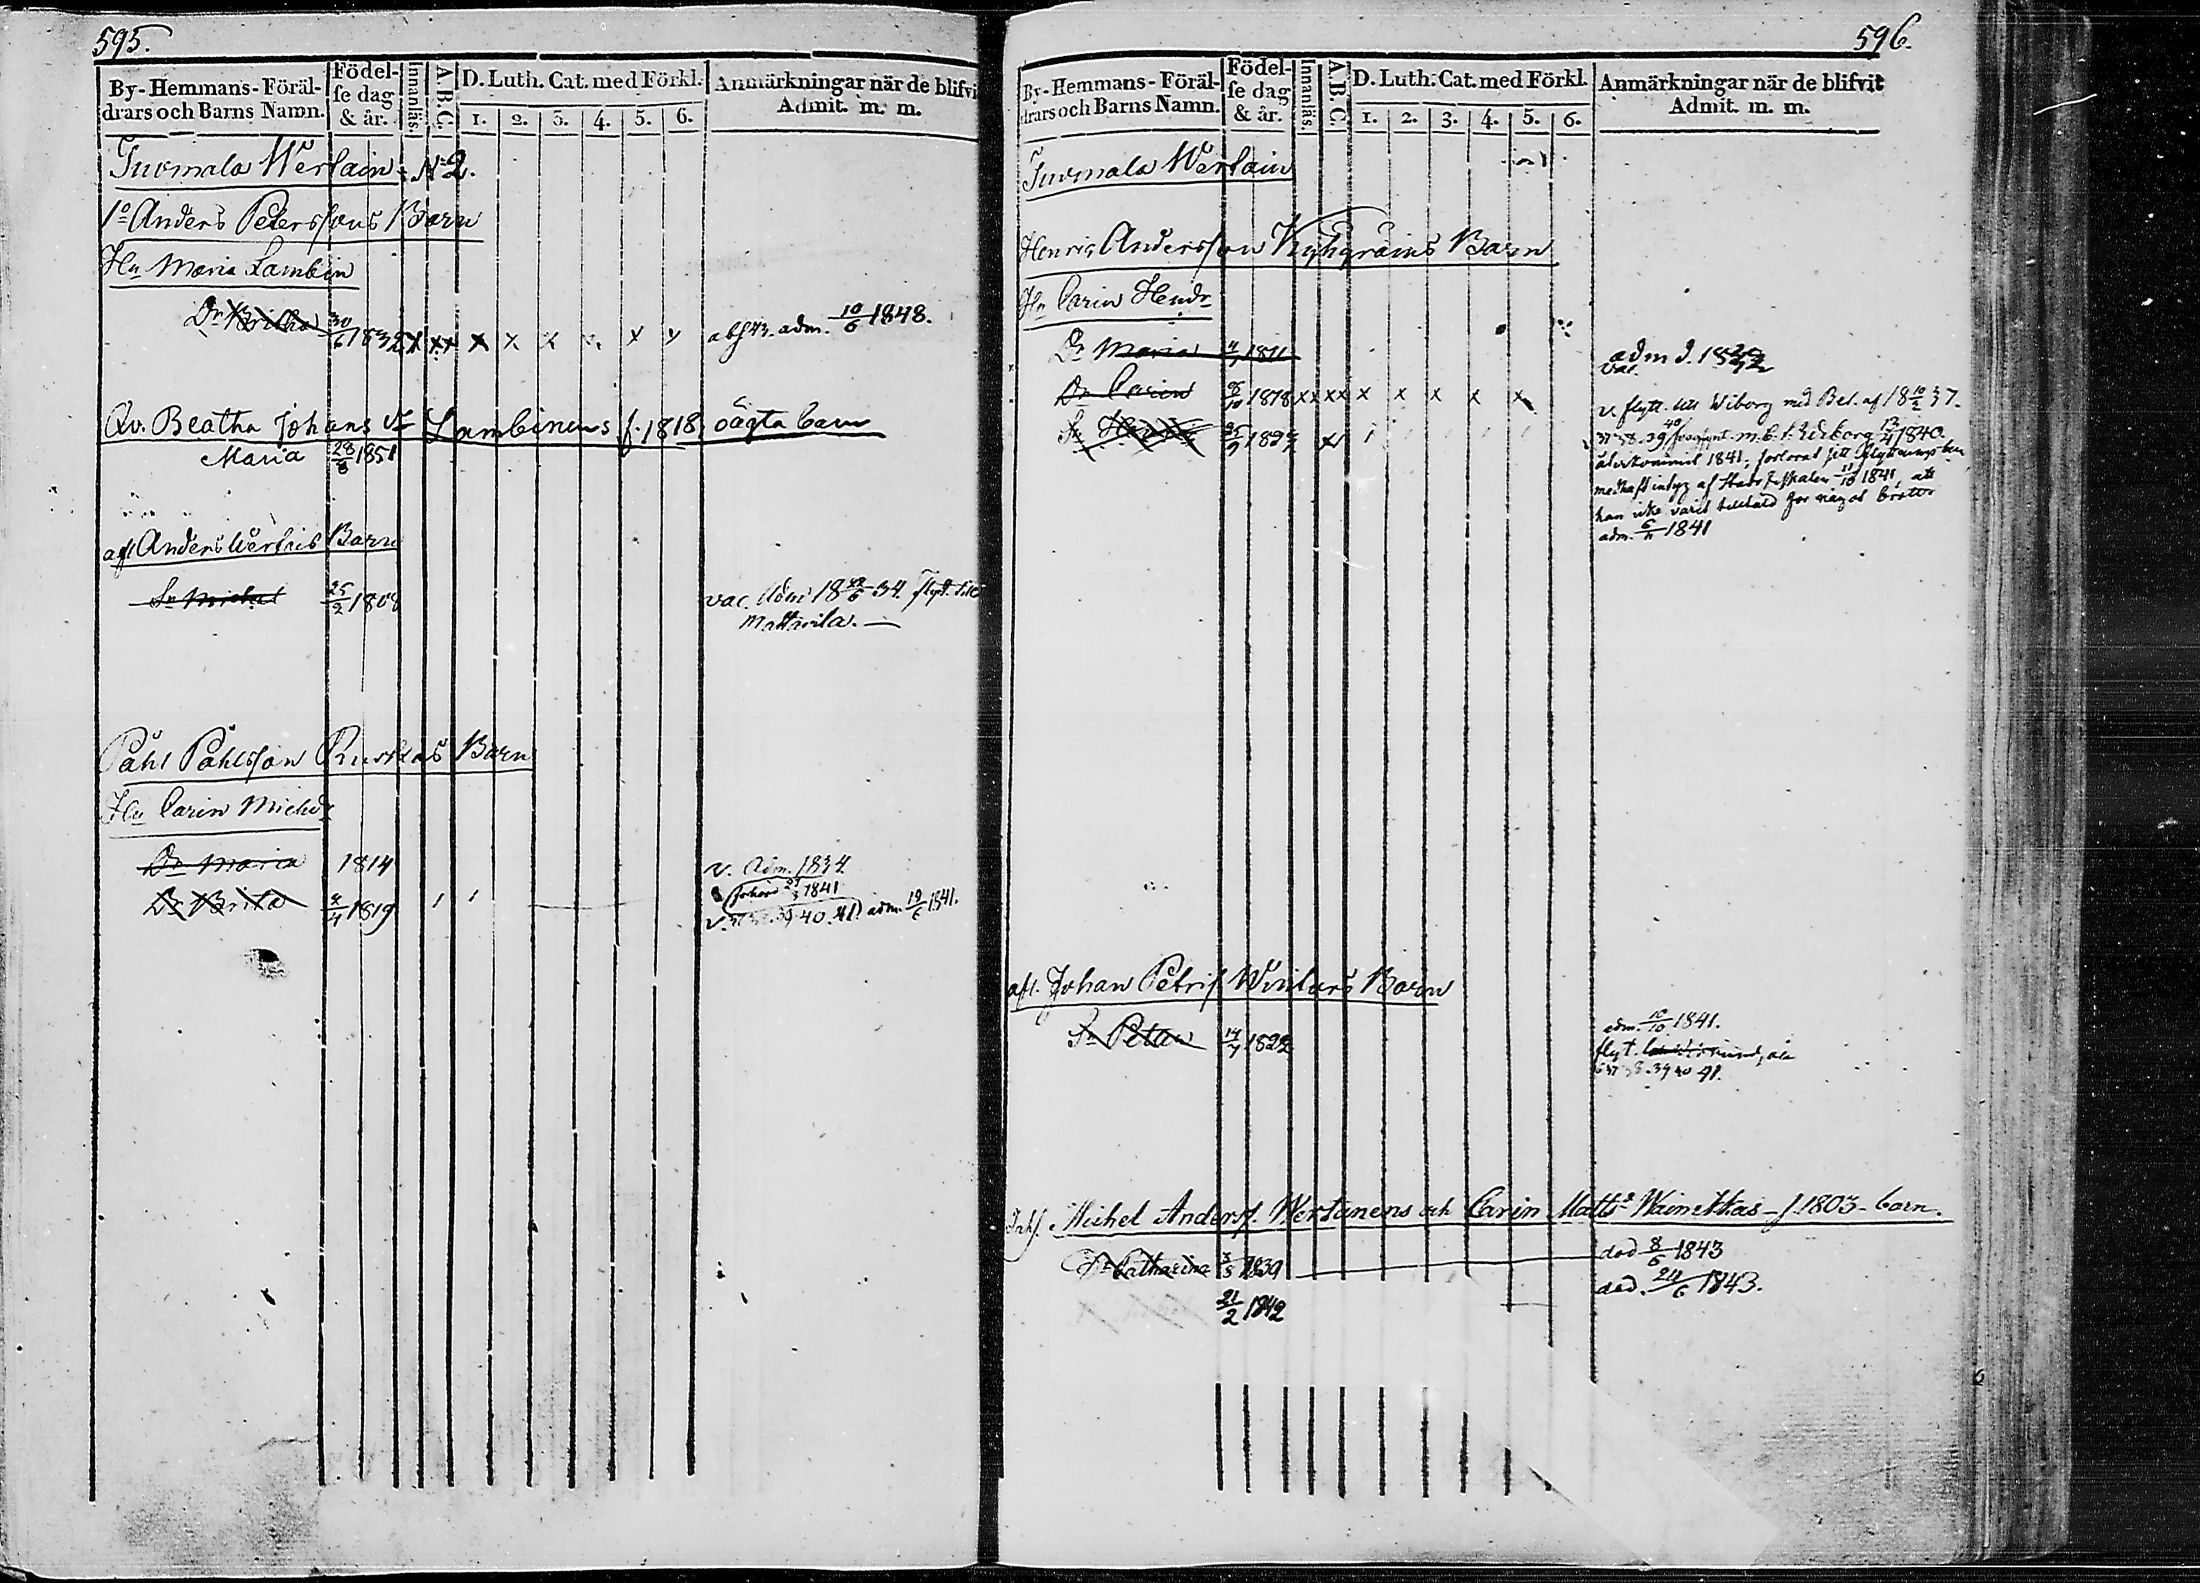 595.
By-Hemmans-Föräl-
drars och Barns Namn.
Födel-
se dag
& år.
Innanläs.
A.B.C.
D. Luth. Cat. med Förkl.
1. 2. 3. 4. 5. 6.
Anmärkningar när de blifvi
Admit. m. m.
Juvmala Wertain N 2.
1o Anders Peterssons Barn
Hu Maria Lambin
Dr Britha 30/6 1832 x xx x x x x x abs 43. adm. 10/6 1848.
Qv. Beatha Johans dr Lambinens f. 1818 oägta barn
Maria 28/8 1851
afl Anders Wertais Barn
Sn Michel 25/2 1808 vac. Adm 18 22/6 34. Flytt. till
Mattwila. —
Påhl Påhlsson Ruskas Barn
Hu Carin Michdr
Dr Maria 1814 v. Adm. 1834
Dr Brita 4/4 1819 1841
v. 37 38. 39 40. 41) adm. 19/6 1841.
596.
By-Hemmans-Föräl-
drars och Barns Namn.
Födel-
se dag
& år.
Innanläs.
A.B.C.
D. Luth. Cat. med Förkl.
1. 2. 3. 4. 5. 6.
Anmärkningar när de blifvit
Admit. m. m.
Juvmala Wertain
Henric Andersson Barn
Hu Carin Hendr
Dr Maria 1811 adm d. 18
vac.
Dr Carin 8/10 1818 xx xx x x x x x v. flytt. till Wiborg med Bet. af 18 10/2 37.
Sn 37 38. 39 40 m. b. t. Wiborg 13/4 1840.
återkommit 1841, förlorat sitt
medhaft intyg af 11/10 1841, att
han icke varit tilltald för något brott
adm. 6/11 1841
afl. Johan Petris Winturs Barn
Sn Petter 14/7 1822 adm. 10/10 1841.
flyt.
37 38. 39 40 41.
Inhs. Michel Anderss. Wertanens och Carin Matts Wainikkas f. 1803 – barn.
Dr Catharina 3/5 1839 död 8/6 1843
21/2 1842 död. 24/6 1843.